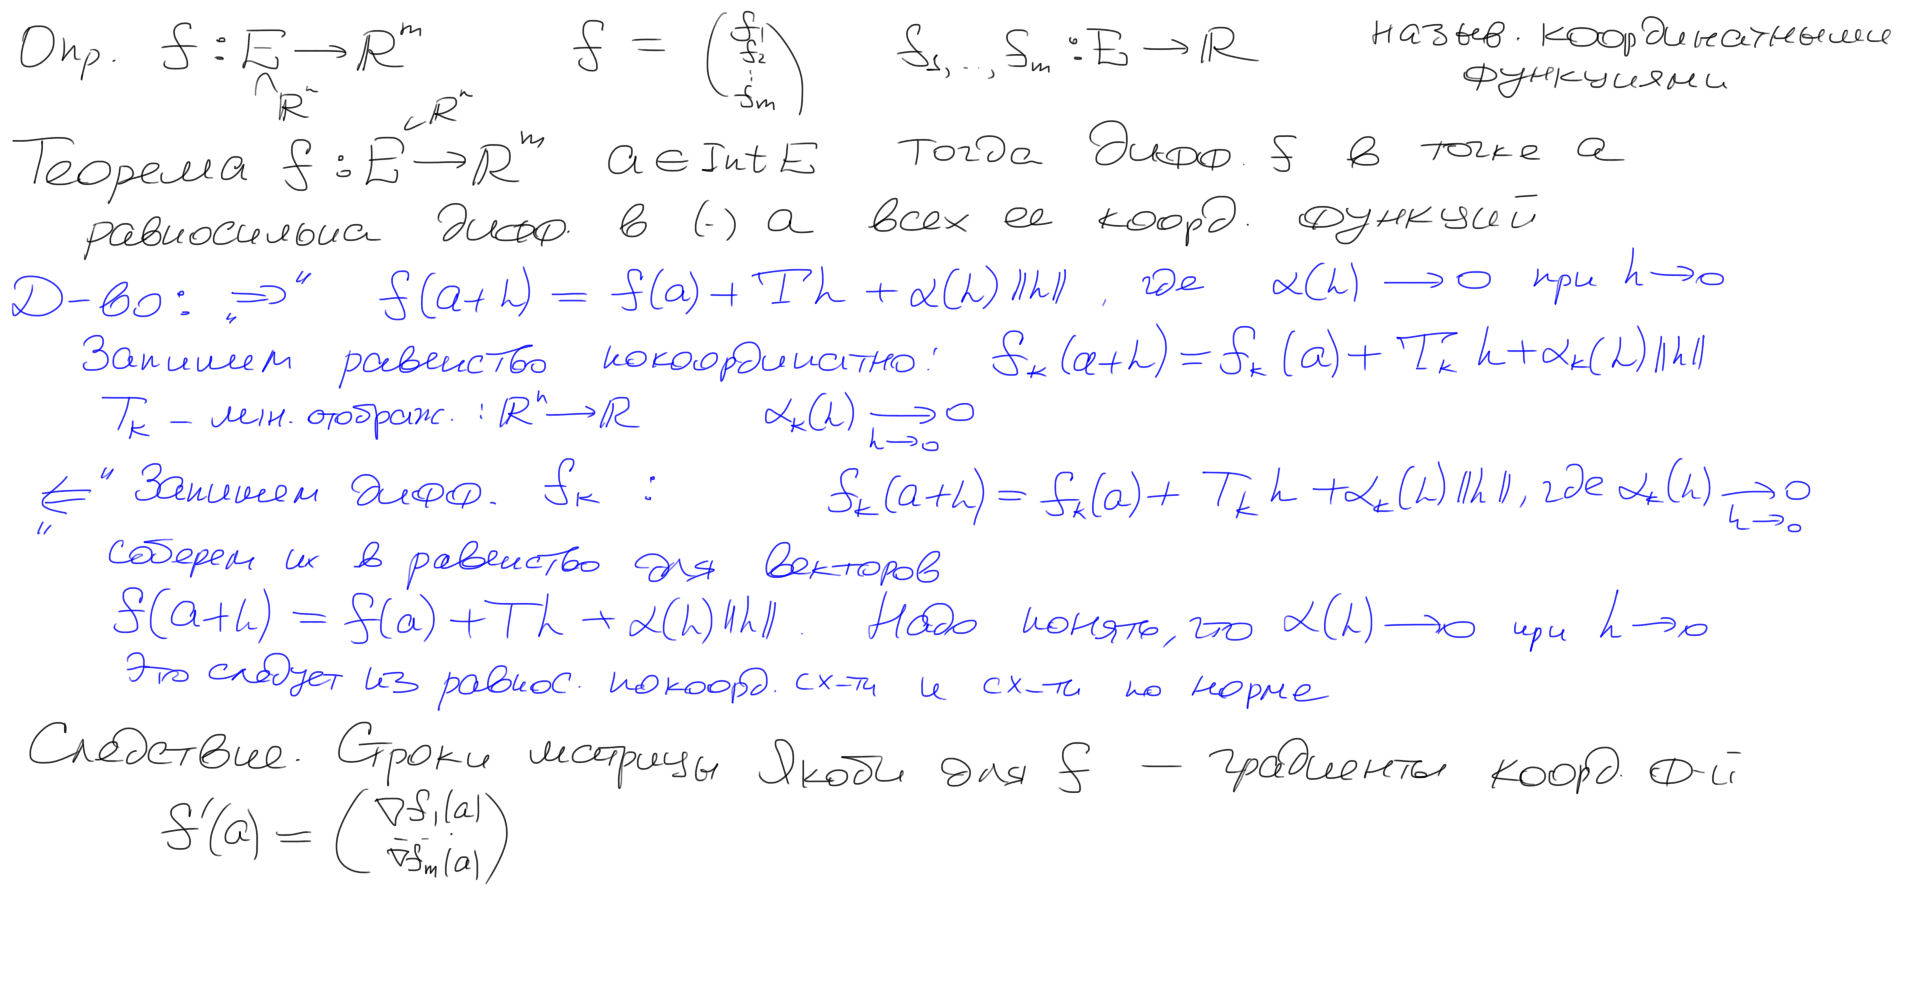 Опр. f : E → ℝᵐ   f = (f₁ f₂ ⋮ fₘ)   f₁, .., fₘ : E → ℝ   назыв. координатными функциями
∩ ℝⁿ
⊂ ℝⁿ
Теорема f : E → ℝᵐ   a ∈ Int E   тогда дифф. f в точке a
равносильна дифф. в (·) a всех ее коорд. функций
Д-во: „⇒“ f(a+h) = f(a) + Th + α(h)‖h‖, где α(h) → 0 при h → 0
Запишем равенство покоординатно: fₖ(a+h) = fₖ(a) + Tₖ h + αₖ(h)‖h‖
Tₖ – лин. отображ. : ℝⁿ → ℝ   αₖ(h) → 0 h→0
„⇐“ Запишем дифф. fₖ :   fₖ(a+h) = fₖ(a) + Tₖ h + αₖ(h)‖h‖, где αₖ(h) → 0 h→0
соберем их в равенство для векторов
f(a+h) = f(a) + Th + α(h)‖h‖. Надо понять, что α(h) → 0 при h → 0
Это следует из равнос. покоорд. сх-ти и сх-ти по норме
Следствие. Строки матрицы Якоби для f – градиенты коорд. ф-й
f'(a) = (∇f₁(a) ... ∇fₘ(a))